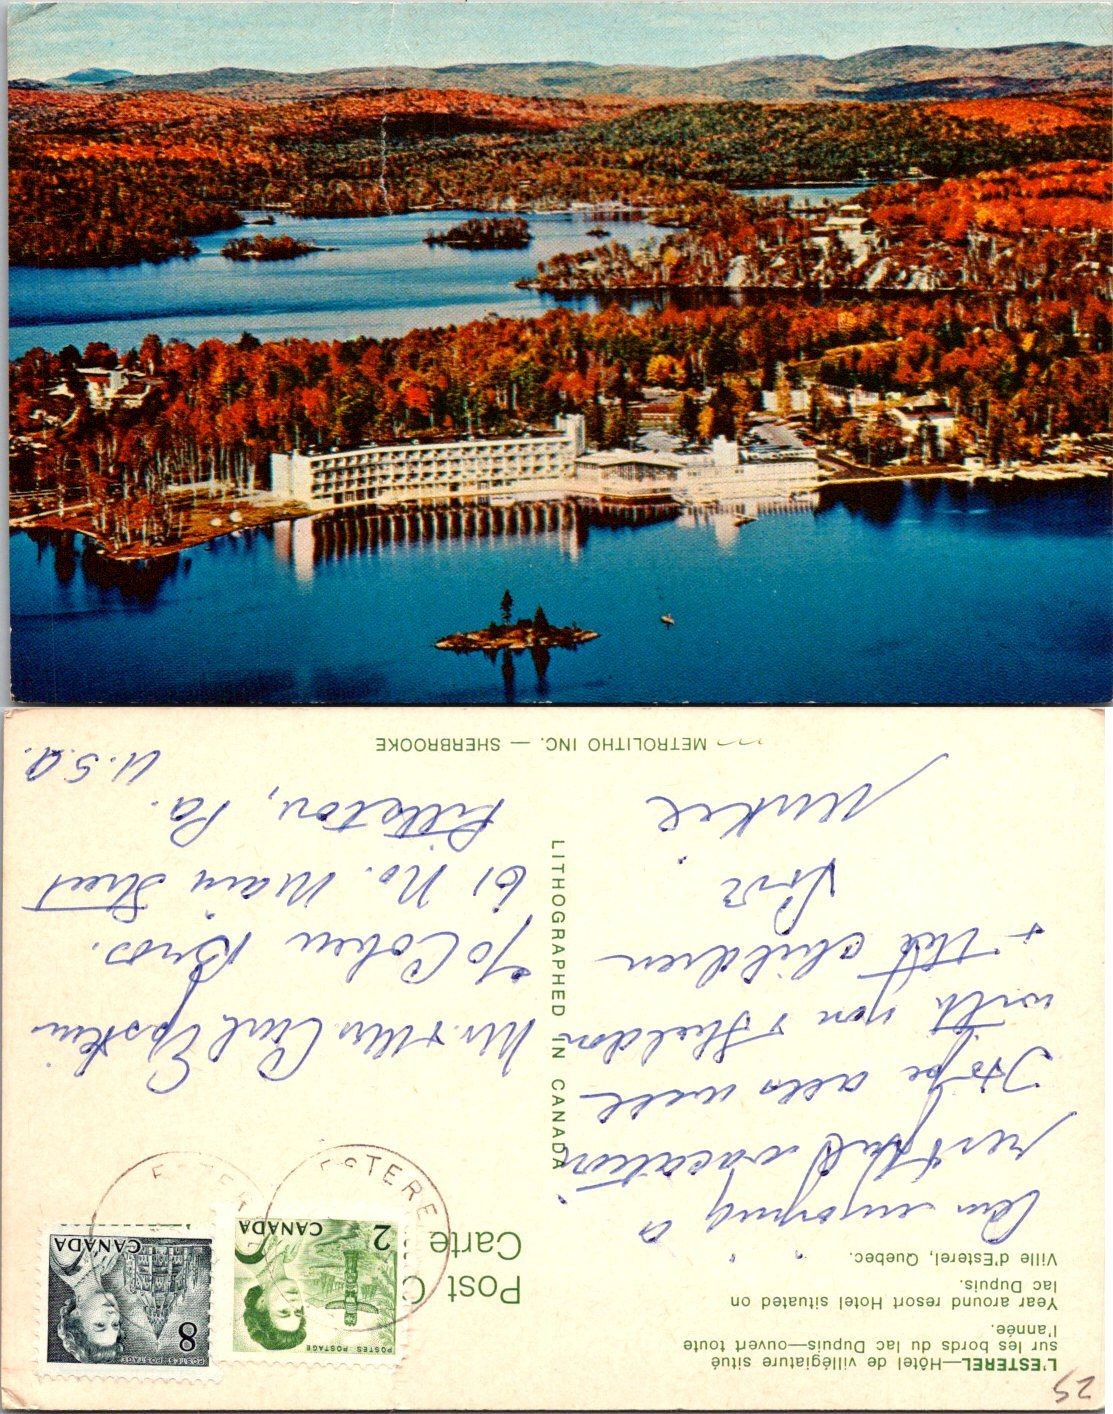 25
L'ESTEREL—Hôtel de villégiature situé
sur les bords du lac Dupuis—ouvert toute
l'année.
Year around resort Hotel situated on
lac Dupuis.
Ville d'Esterel, Quebec.
Am enjoying a
restful vacation
Hope all's well
with you & Sheldon
& the children
Post C
Carte
POSTES POSTAGE
2
CANADA
POSTES POSTAGE
8
CANADA
ESTEREL
ESTER
LITHOGRAPHED IN CANADA
Mr. & Mrs Carl Epstein
c/o Cohen Bros.
61 No. Main Street
Pittston, Pa.
U.S.A.
METROLITHO INC. — SHERBROOKE